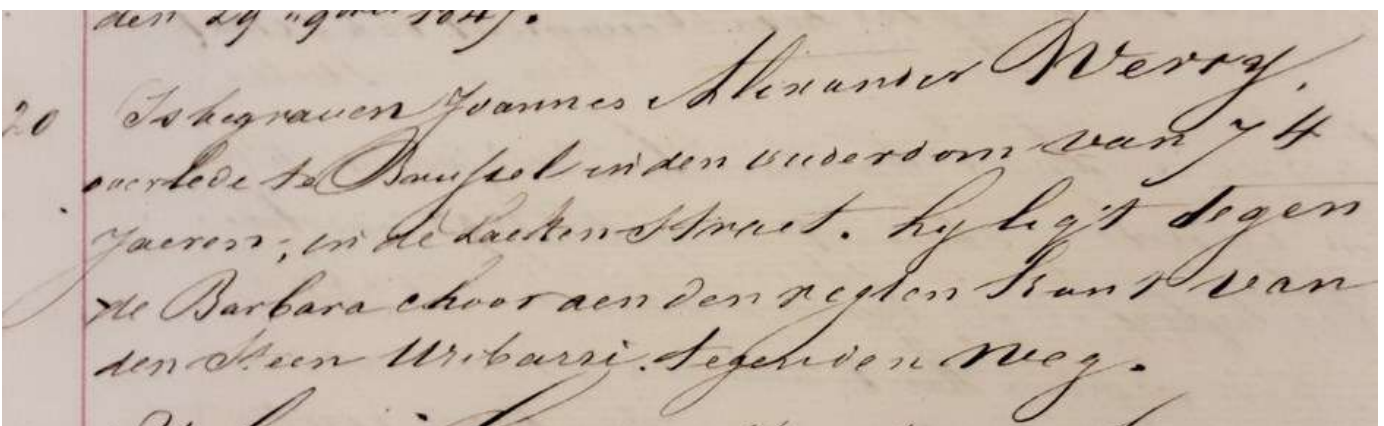 den 29 9ber 1847.
20 Is begraven Joannes Alixander Werry,
overlede te Brussel in den ouderdom van 74
Jaeren, in de Laeken Straet. hy ligt tegen
de Barbara choor aen den regten kant van
den Steen Uribarri. tegen den weg.